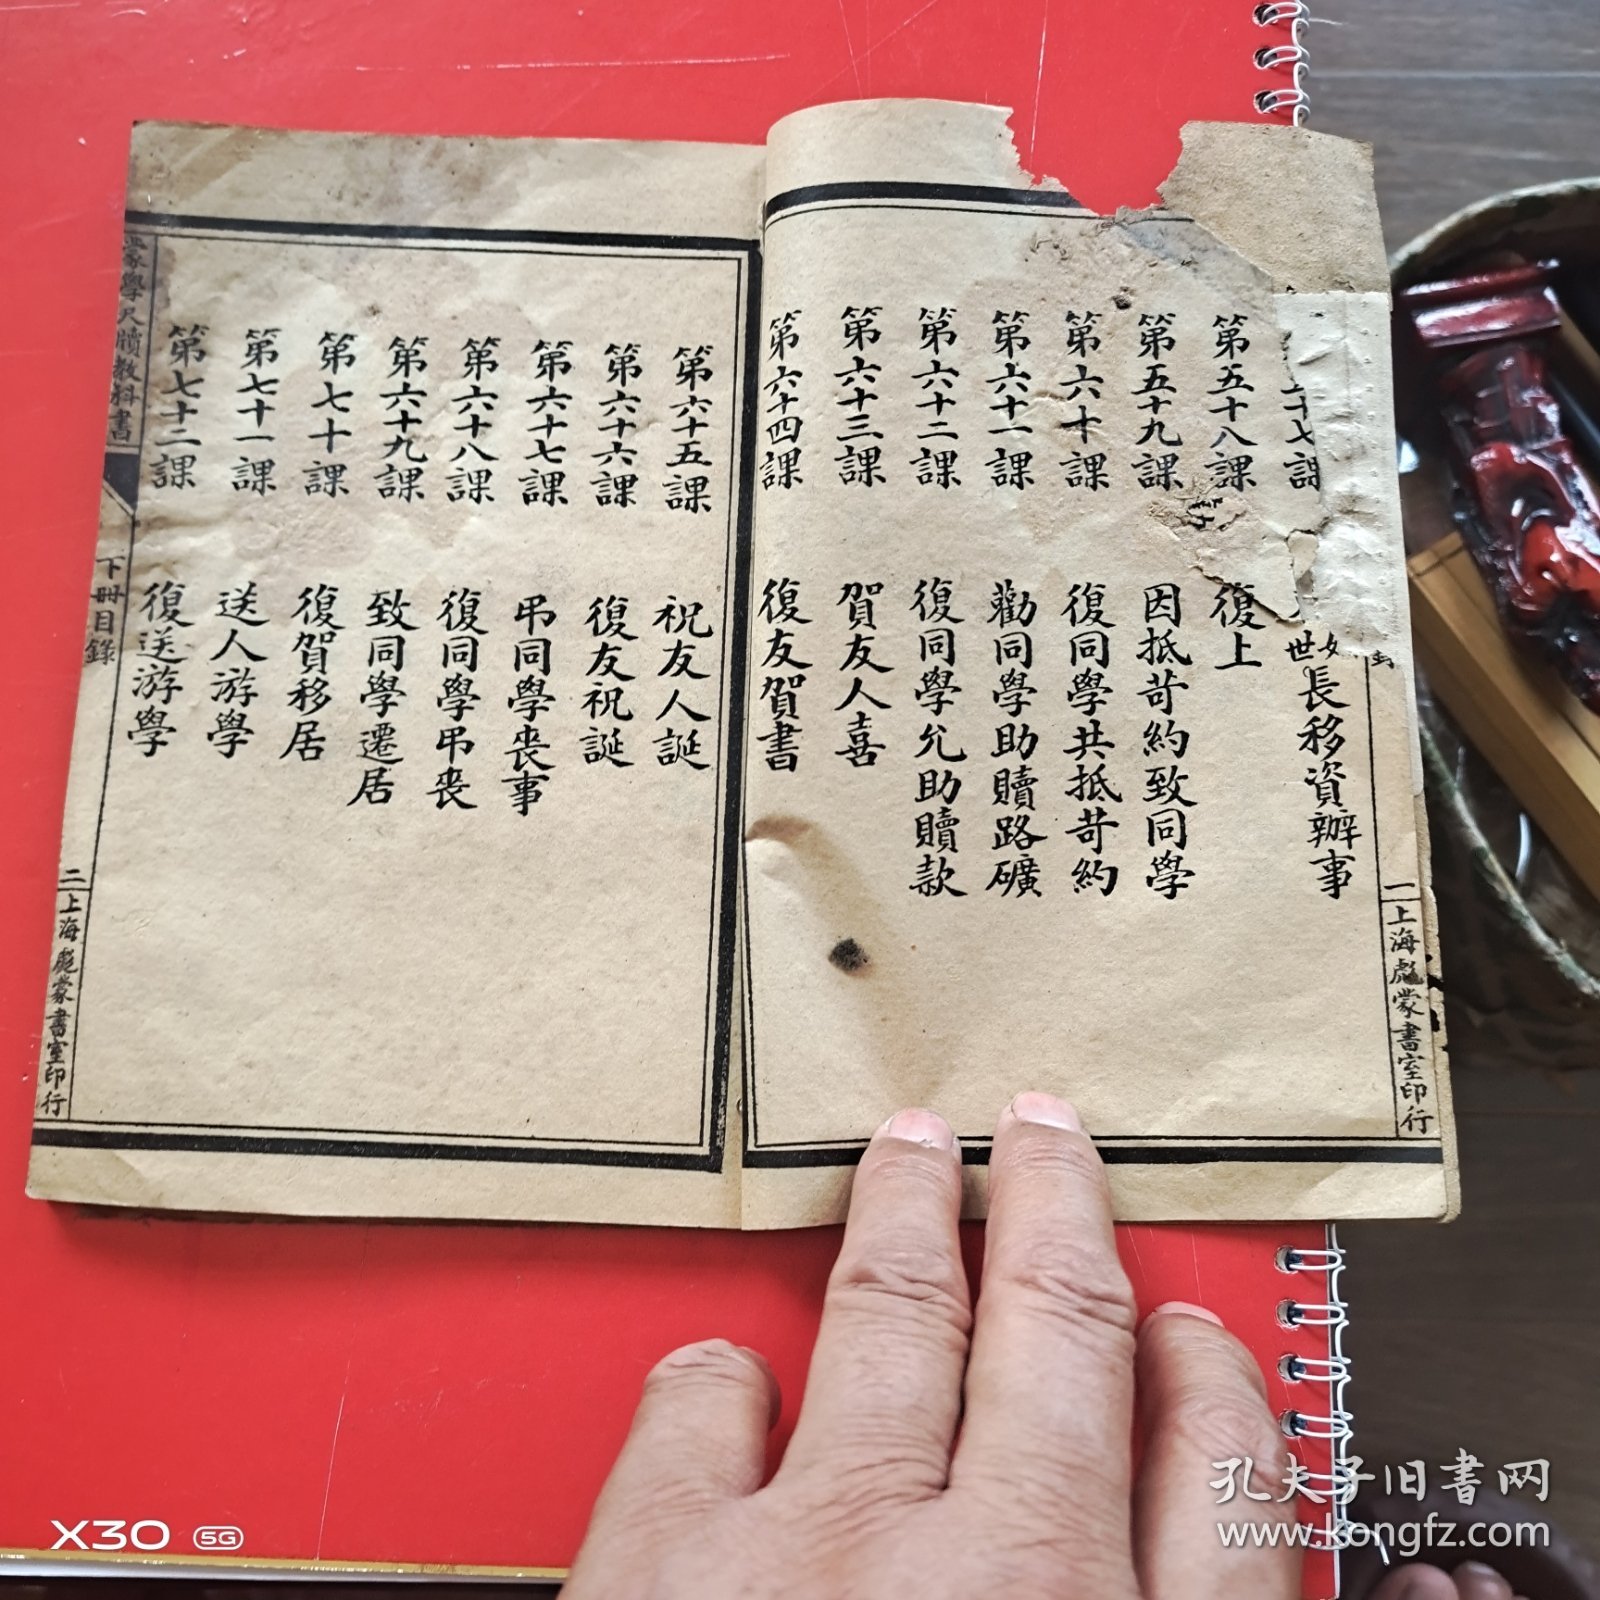 長移資辦事
第五十八課 復上
第五十九課 因抵苛約致同學
第六十課 復同學共抵苛約
第六十一課 勸同學助贖路礦
第六十二課 復同學允助贖款
第六十三課 賀友人喜
第六十四課 復友賀書
一 上海彪蒙書室印行
第六十五課 祝友人誕
第六十六課 復友祝誕
第六十七課 弔同學喪事
第六十八課 復同學弔喪
第六十九課 致同學遷居
第七十課 復賀移居
第七十一課 送人游學
第七十二課 復送游學
蒙學尺牘教科書 下冊目錄 二 上海彪蒙書室印行
X30 5G
孔夫子旧书网
www.kongfz.com